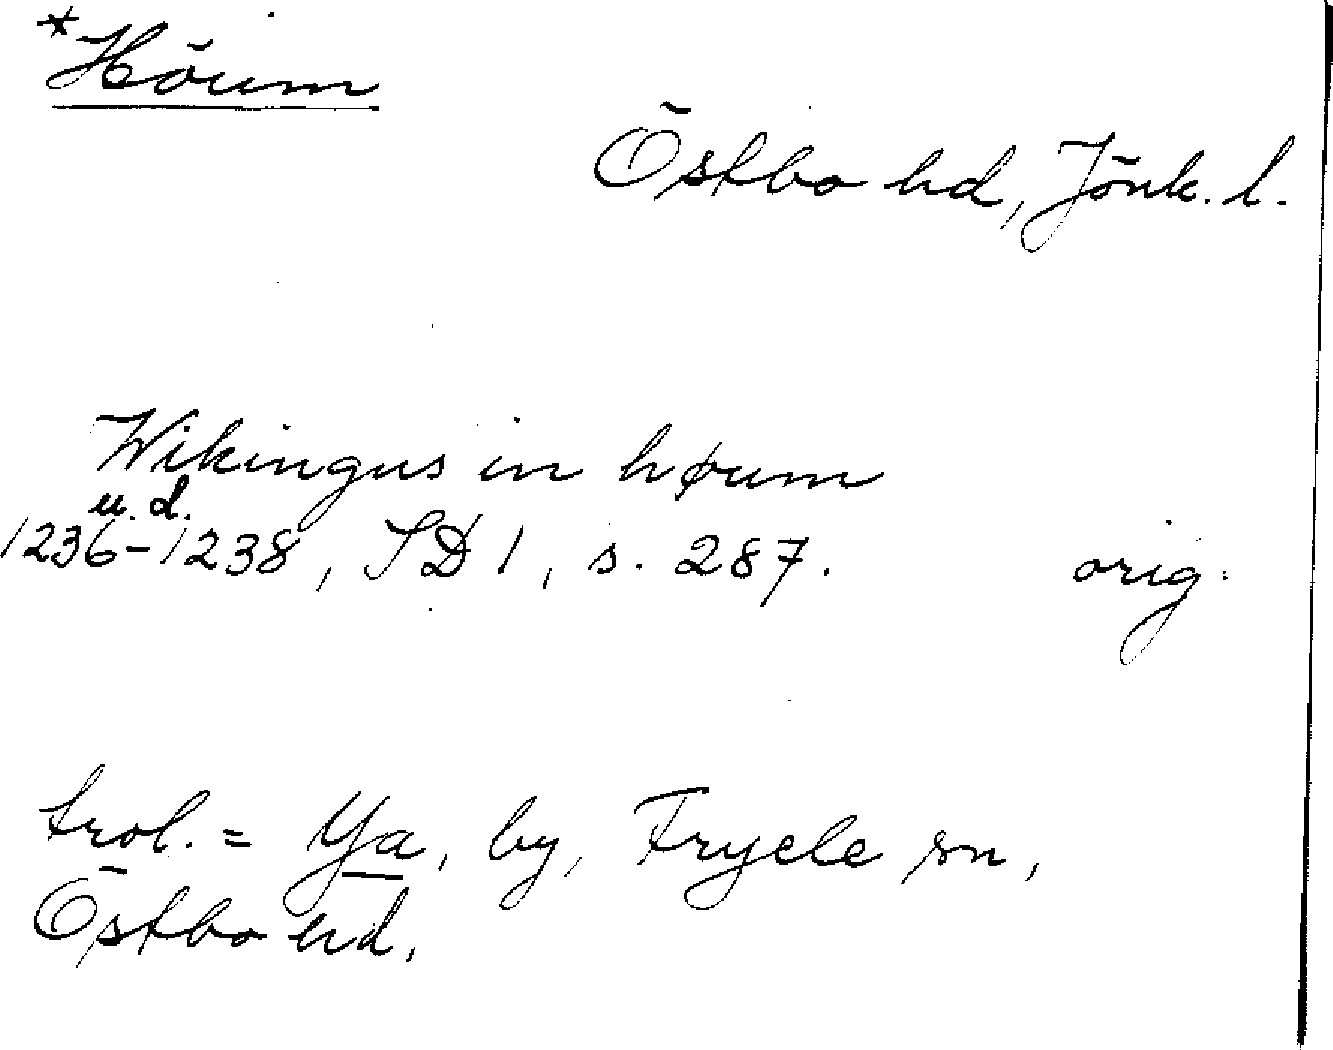 *Höum
Östbo hd, Jönk. l.
Wikingus in høum
u. d.
1236-1238, SD 1, s. 287. orig.
trol. = Ya, by, Fryele sn,
Östbo hd.